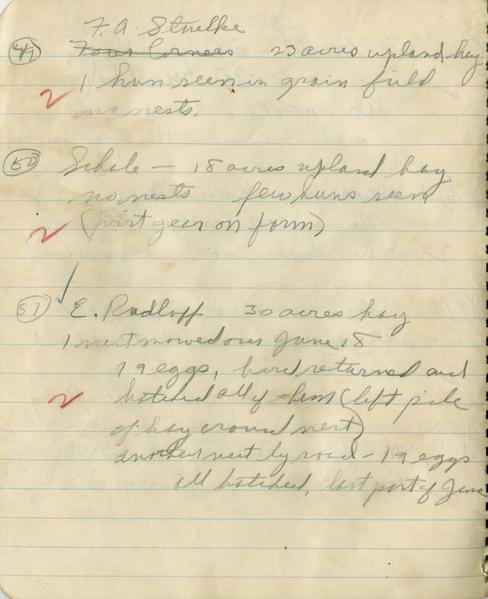 F. A. Struelke
(49) Four Corners 23 acres upland hay
1 hun seen in grain field
no nests.
(50) Schale — 18 acres upland hay
no nests few huns seen
(first year on farm)
(51) E. Radloff 30 acres hay
1 nest mowed over June 18
19 eggs, bird returned and
hatched all of them (left pile
of hay around nest)
another nest by road - 19 eggs
all hatched, last part of June